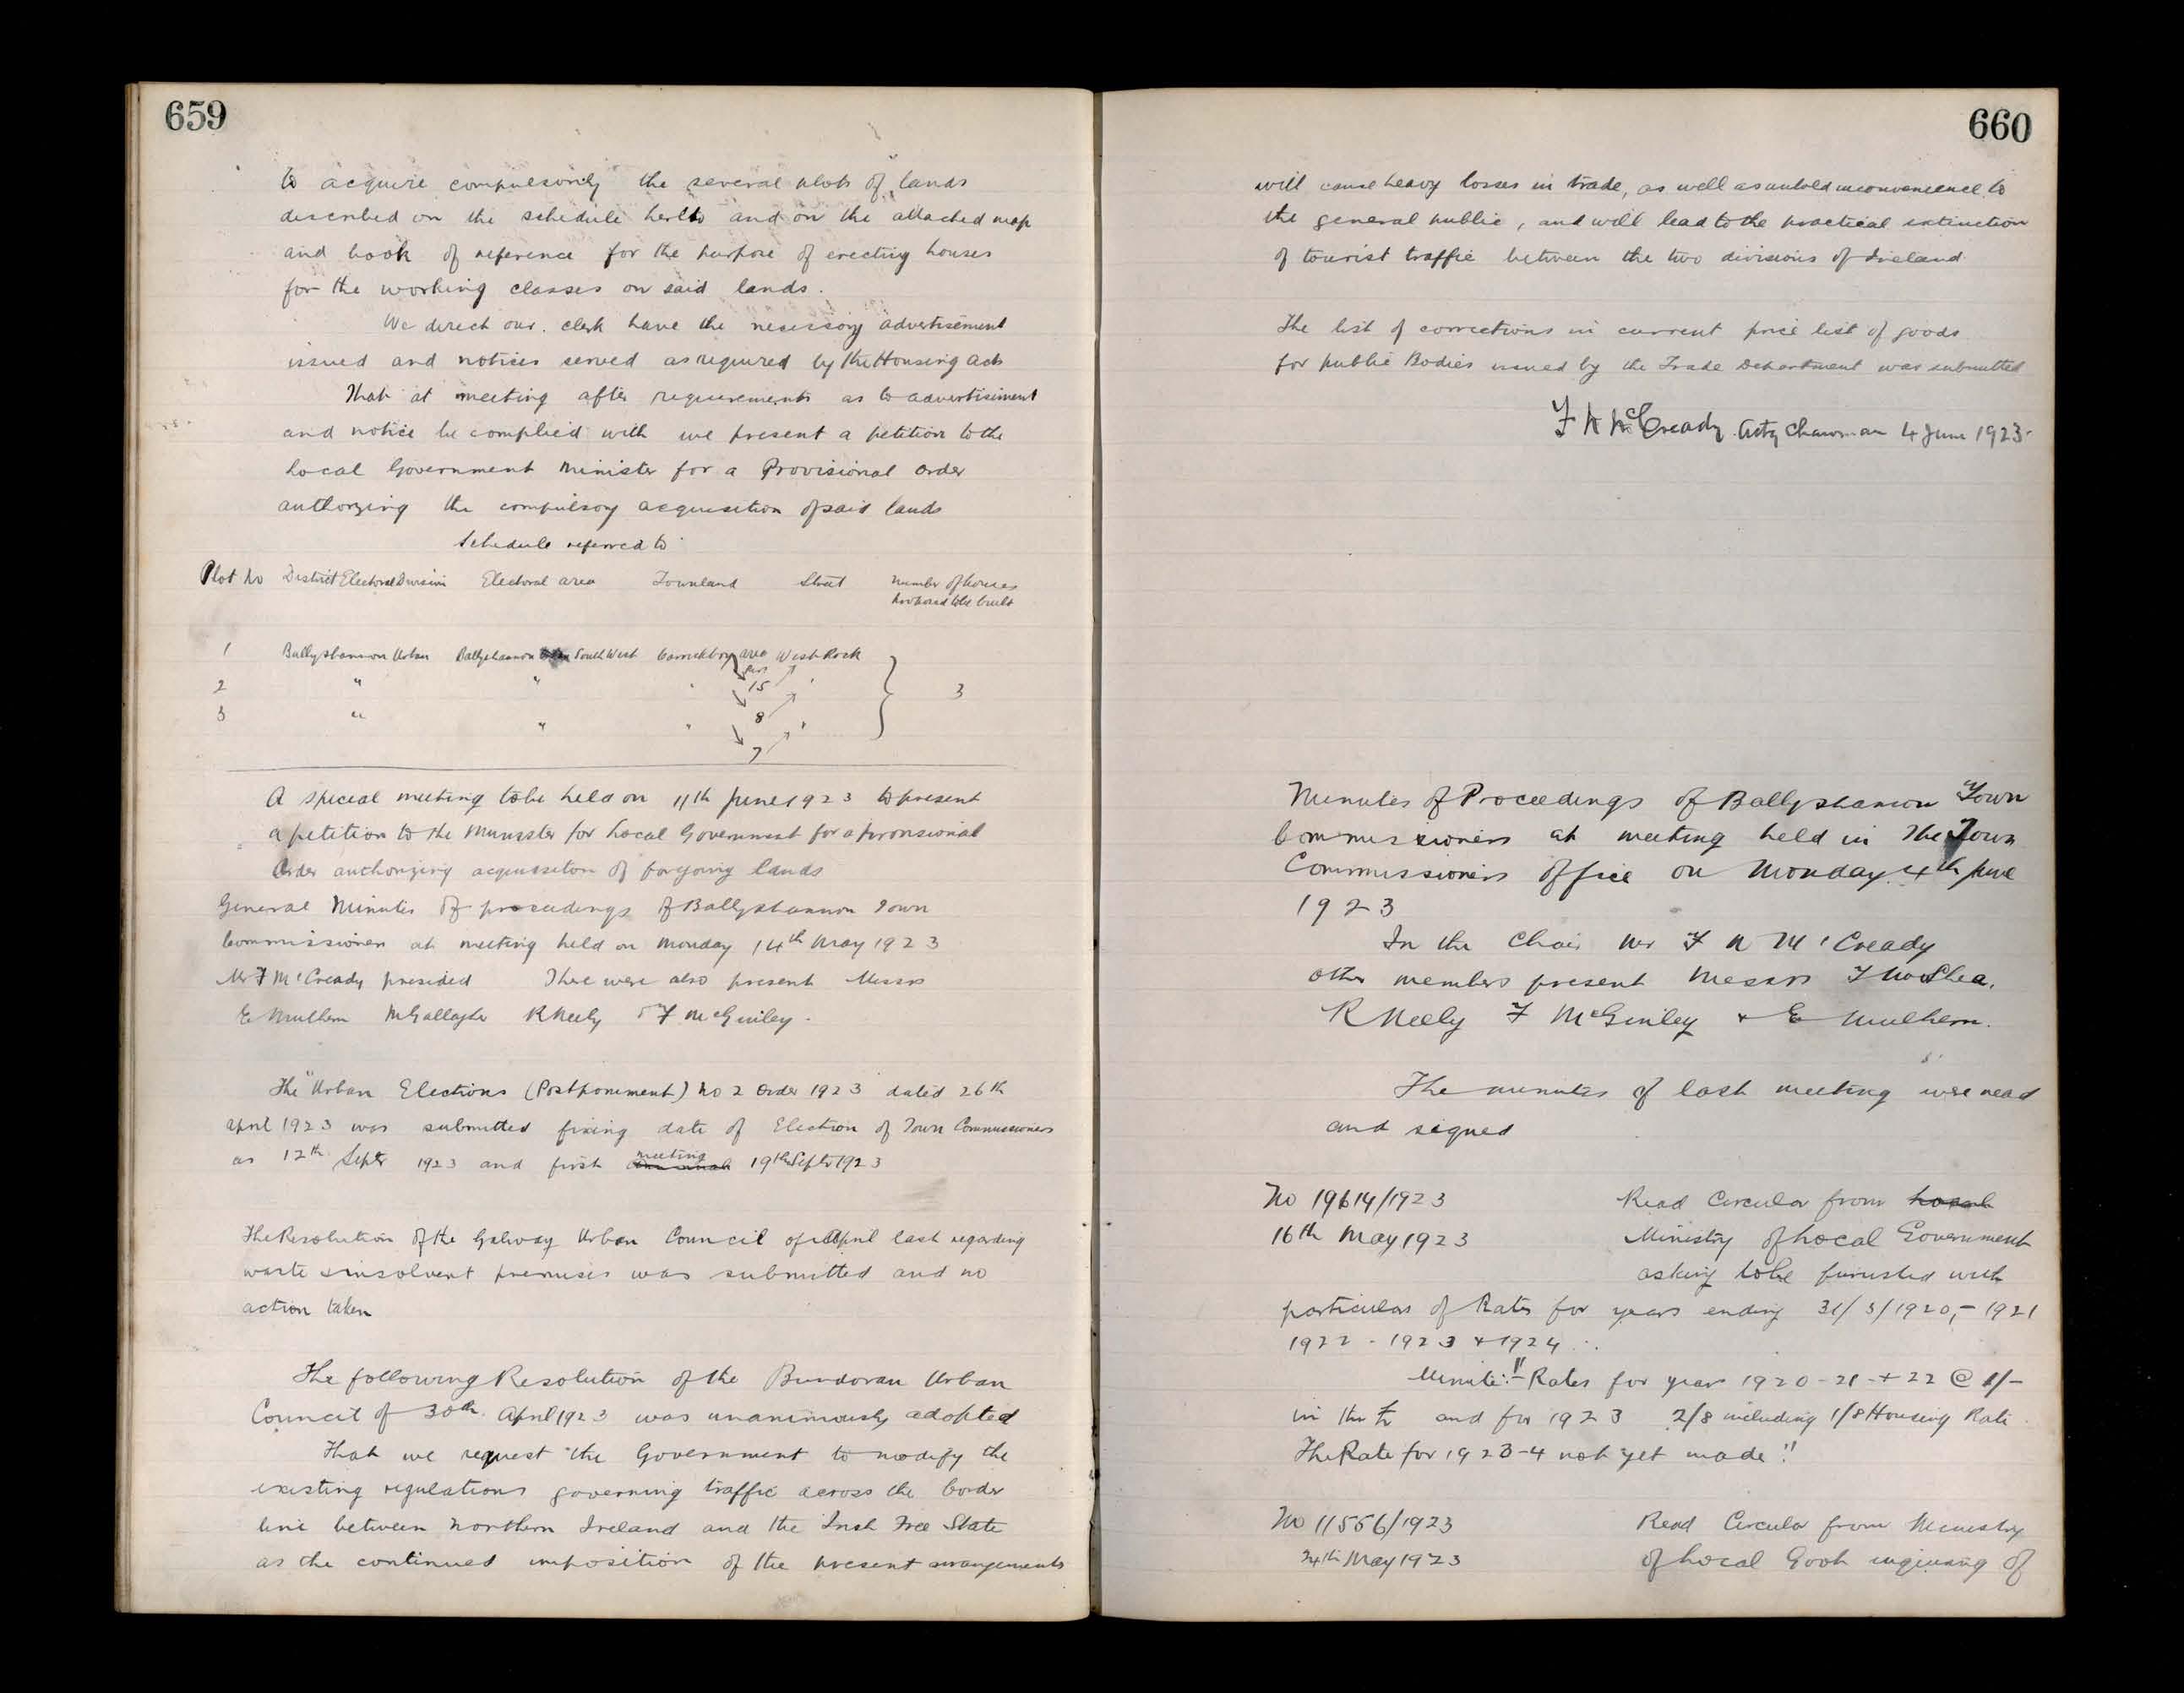 659
to acquire compulsorily the several plots of lands
described on the schedule herto and on the attached map
and book of reference for the purpose of erecting houses
for the working classes on said lands.
We direct our clerk have the necessary advertisement
issued and notices served as required by the Housing acts
That at meeting after requirements as to advertisiment
and notice be complied with we present a petition to the
Local Government Minister for a Provisional Order
authorzing the compulsory acquisition of said lands
Schedule referred to
Plot No District Electoral Division Electoral area Townland Street Number of houses
proposed to be built
1 Ballyshannon Urban Ballyshannon South West Carrickboy area West Rock
2 " " " 15 " 3
3 " " " 8 "
7
A special meeting to be held on 11th June 1923 to present
a petition to the Munister for Local Government for a provisional
Order authorizing acquisiton of forgoing lands
General Minutes of proceedings of Ballyshannon Town
Commissioners at meeting held on Monday 14th May 1923
Mr F McCready presided There were also present Messrs
E Mulhern M Gallagher R Neely & F McGinley.
The "Urban Elections (Postponement) No 2 Order 1923 dated 26th
April 1923 was submitted fixing date of Election of Town Commissioners
as 12th Septr 1923 and first meeting 19th Septr 1923
The Resolution of the Galway Urban Council of April last regarding
waste & insolvent premises was submitted and no
action taken
The following Resolution of the Bundoran Urban
Council of 30th April 1923 was unanimously adopted
That we request the Government to modify the
existing regulations governing traffic across the border
line between Northern Ireland and the Irish Free State
as the continued imposition of the present arrangements
660
will cause heavy losses in trade, as well as untold inconvenience to
the general public, and will lead to the practical extinction
of tourist traffic between the two divisions of Ireland
The list of corrections in current price list of goods
for public Bodies issued by the Trade Department was submitted
F N McCready Actg Chairman 4 June 1923
Minutes of Proceedings of Ballyshannon Town
Commissioners at meeting held in The Town
Commissioners Office on Monday 4th June
1923
In the Chair Mr F N McCready
other members present Messrs
R Neely F McGinley & E Mulhern.
The minutes of last meeting were read
and signed
No 19614/1923 Read Circular from Local
16th May 1923 Ministry of Local Government
asking to be furnished with
particulars of Rates for years ending 31/3/1920,- 1921
1922 - 1923 & 1924
Minute:- "Rates for year 1920-21-+22 @ 1/-
in the £ and for 1923 2/8 including 1/8 Housing Rate
The Rate for 1923-4 not yet made"
No 11556/1923 Read Circular from Ministry
24th May 1923 of Local Govt inquiring of